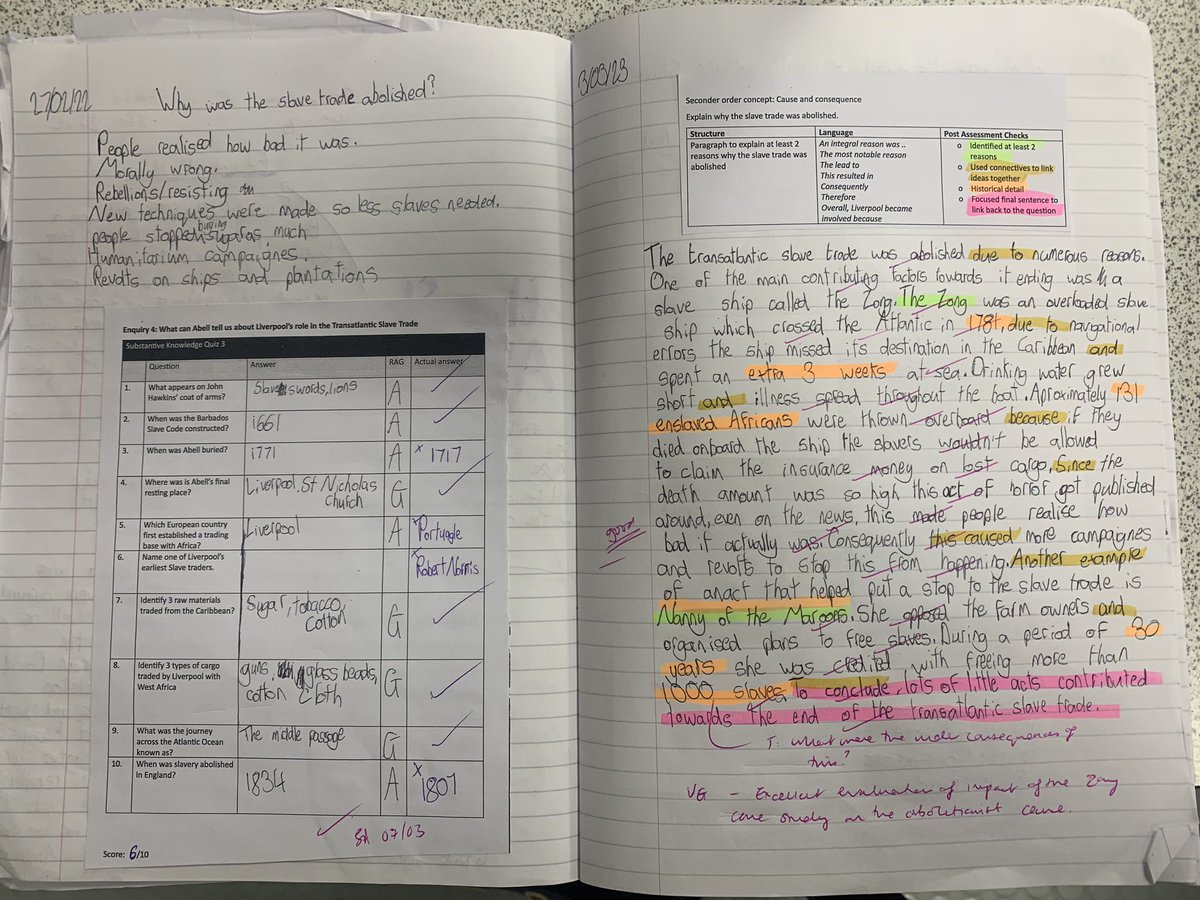 27/02/22
Why was the slave trade abolished?
People realised how bad it was.
Morally wrong.
Rebellions/resisting
New techniques were made so less slaves needed.
people stopped buying sugar as much
Humanitarium campaignes.
Revolts on ships and plantations
Enquiry 4: What can Abell tell us about Liverpool's role in the Transatlantic Slave Trade
Substantive Knowledge Quiz 3
Question Answer RAG Actual answer
1. What appears on John Hawkins' coat of arms? swords, lions A ✓
2. When was the Barbados Slave Code constructed? 1661 A ✓
3. When was Abell buried? 1771 A x 1717
4. Where was is Abell's final resting place? Liverpool, St Nicholas church G ✓
5. Which European country first established a trading base with Africa? Liverpool A x Portuagle
6. Name one of Liverpool's earliest Slave traders. x Robert Norris
7. Identify 3 raw materials traded from the Caribbean? Sugar, tobacco, cotton G ✓
8. Identify 3 types of cargo traded by Liverpool with West Africa guns, glass beads, cotton cloth G ✓
9. What was the journey across the Atlantic Ocean known as? The middle passage G ✓
10. When was slavery abolished in England? 1834 A x 1807
07/03
Score: 6/10
3/03/23
Seconder order concept: Cause and consequence
Explain why the slave trade was abolished.
Structure Language Post Assessment Checks
Paragraph to explain at least 2 reasons why the slave trade was abolished
An integral reason was ..
The most notable reason
The lead to
This resulted in
Consequently
Therefore
Overall, Liverpool became involved because
o Identified at least 2 reasons
o Used connectives to link ideas together
o Historical detail
o Focused final sentence to link back to the question
The transatlantic slave trade was abolished due to numerous reasons.
One of the main contributing factors towards it ending was a
slave ship called the Zong. The Zong was an overloaded slave
ship which crossed the Atlantic in 1781, due to navigational
errors the ship missed its destination in the Caribbean and
spent an extra 3 weeks at sea. Drinking water grew
short and illness spread throughout the boat. Aproximately 131
enslaved Africans were thrown overboard because if they
died onboard the ship the slavers wouldn't be allowed
to claim the insurance money on lost cargo. Since the
death amount was so high this act of horror got published
around, even on the news, this made people realise how
bad it actually was. Consequently this caused more campaignes
and revolts to stop this from happening. Another example
of an act that helped put a stop to the slave trade is
Nanny of the Maroons. She opposed the farm owners and
organised plans to free slaves. During a period of 30
years she was credited with freeing more than
1000 slaves. To conclude, lots of little acts contributed
towards the end of the transatlantic slave trade.
good
T: What were the wide consequences of
this?
VG - Excellent evaluation of impact of the Zong
case study on the abolitionist cause.